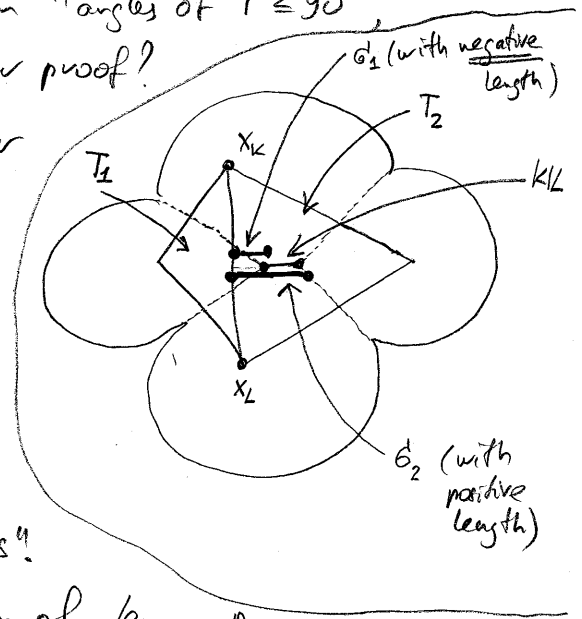 angles of T ≤ 90
proof?
σ₁ (with negative
length)
x_K
T₂
T₁
K|L
x_L
σ₂ (with
positive
length)
s"!
of